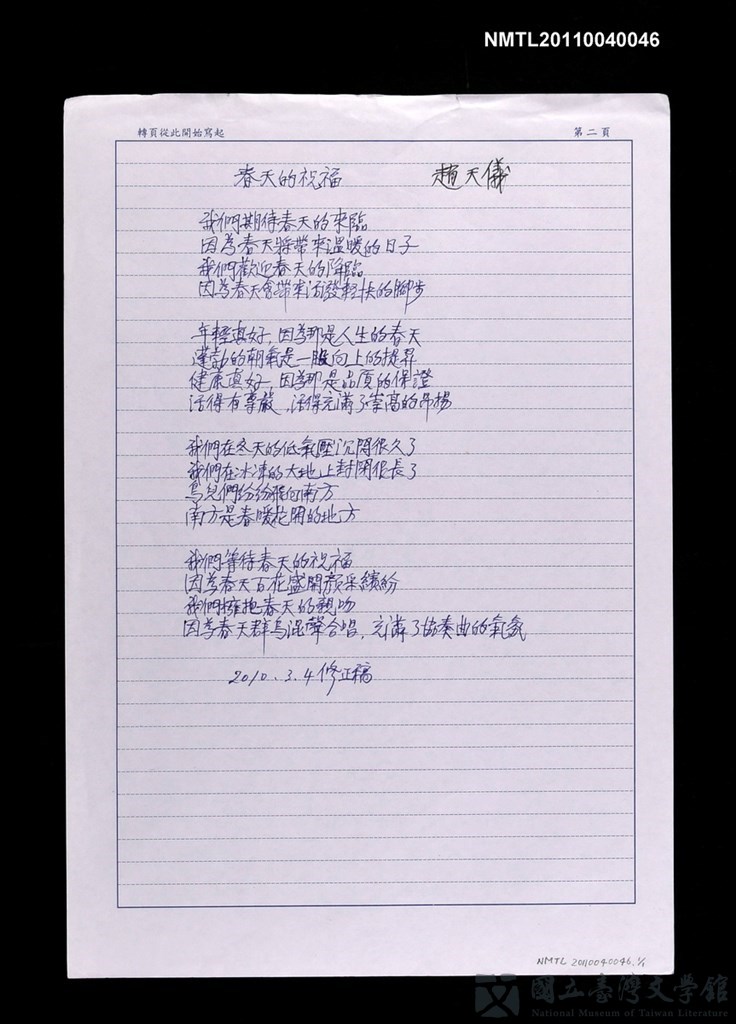 NMTL20110040046
轉頁從此開始寫起
第二頁
春天的祝福 趙天儀
我們期待春天的來臨
因為春天將帶來溫暖的日子
我們歡迎春天的降臨
因為春天會帶來活發輕快的腳步
年輕真好，因為那是人生的春天
蓬勃的朝氣是一股向上的提昇
健康真好，因為那是品質的保證
活得有尊嚴，活得充滿了崇高的昂揚
我們在冬天的低氣壓沉悶很久了
我們在冰凍的大地上封閉很長了
鳥兒們紛紛飛向南方
南方是春暖花開的地方
我們等待春天的祝福
因為春天百花盛開顏采繽紛
我們擁抱春天的親吻
因為春天群鳥混聲合唱，充滿了協奏曲的氣氛
2010.3.4修正稿
NMTL 20110040046.1/1
國立臺灣文學館
National Museum of Taiwan Literature